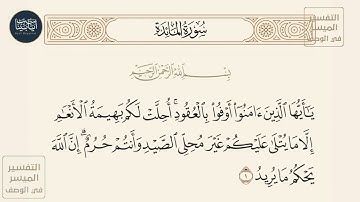 سُورَةُ المَائِدَة
التفسير
الميسر
في الوصف
بِسْمِ اللَّهِ الرَّحْمَٰنِ الرَّحِيمِ
يَـٰٓأَيُّهَا ٱلَّذِينَ ءَامَنُوٓا۟ أَوْفُوا۟ بِٱلْعُقُودِ ۚ أُحِلَّتْ لَكُم بَهِيمَةُ ٱلْأَنْعَـٰمِ
إِلَّا مَا يُتْلَىٰ عَلَيْكُمْ غَيْرَ مُحِلِّى ٱلصَّيْدِ وَأَنتُمْ حُرُمٌ ۗ إِنَّ ٱللَّهَ
يَحْكُمُ مَا يُرِيدُ ١
التفسير
الميسر
في الوصف